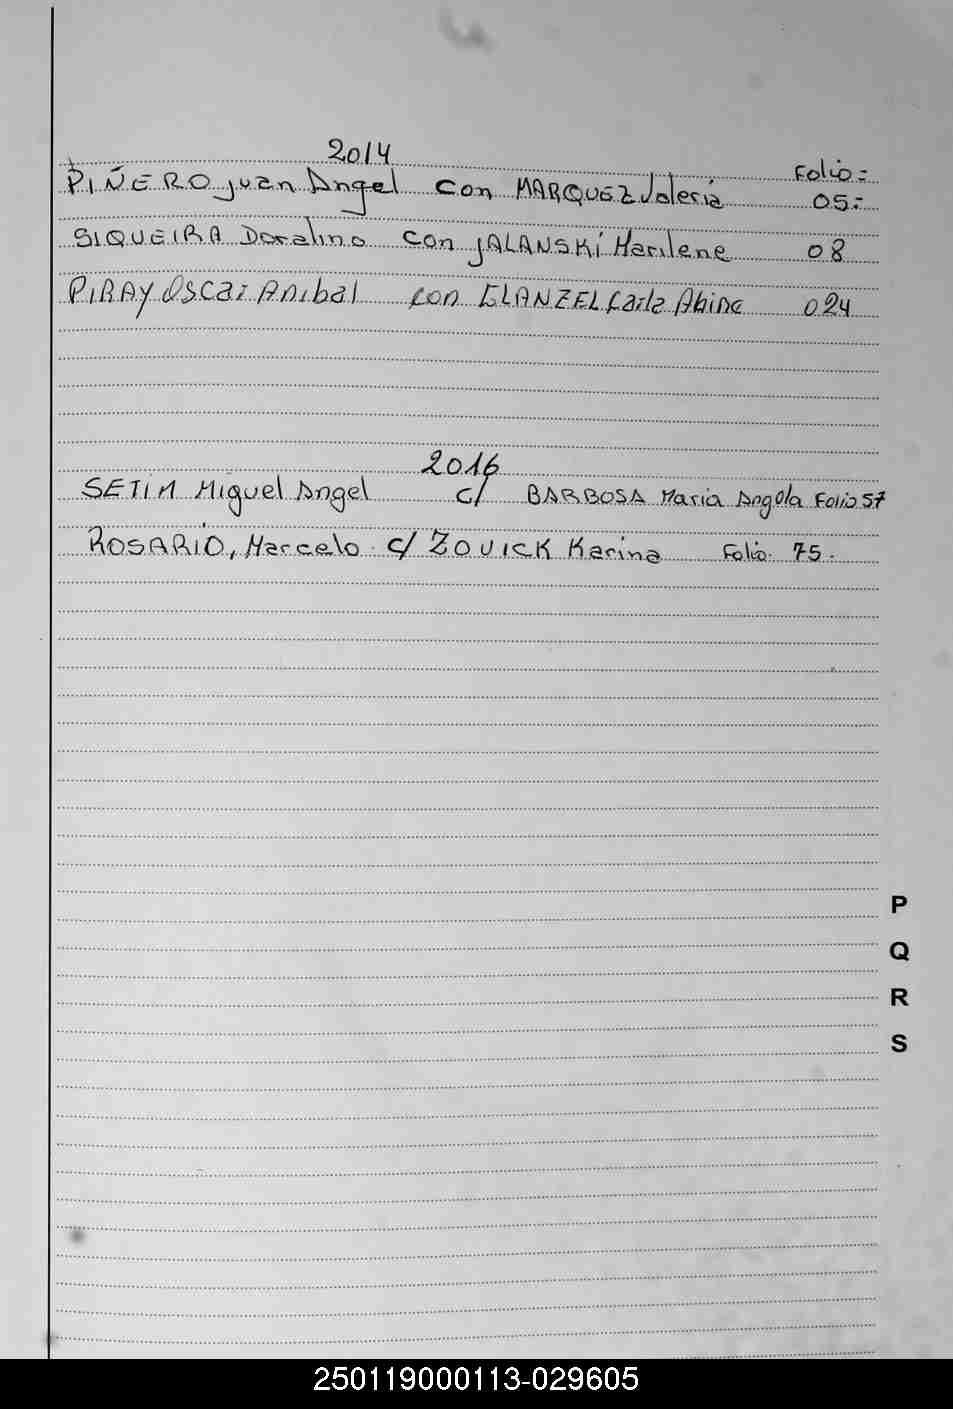 2014
Folio=
PIÑERO Juan Angel con MARQUEZ Valeria 05=
SIQUEIRA Doralino con JALANSKi Marilene 08
PIRAY Oscar Anibal con GLANZEL Carla 024
2016
SETIM Miguel Angel c/ BARBOSA Maria Angela Folio 57
ROSARIO, Marcelo c/ ZOUICK Karina Folio. 75.
P
Q
R
S
250119000113-029605